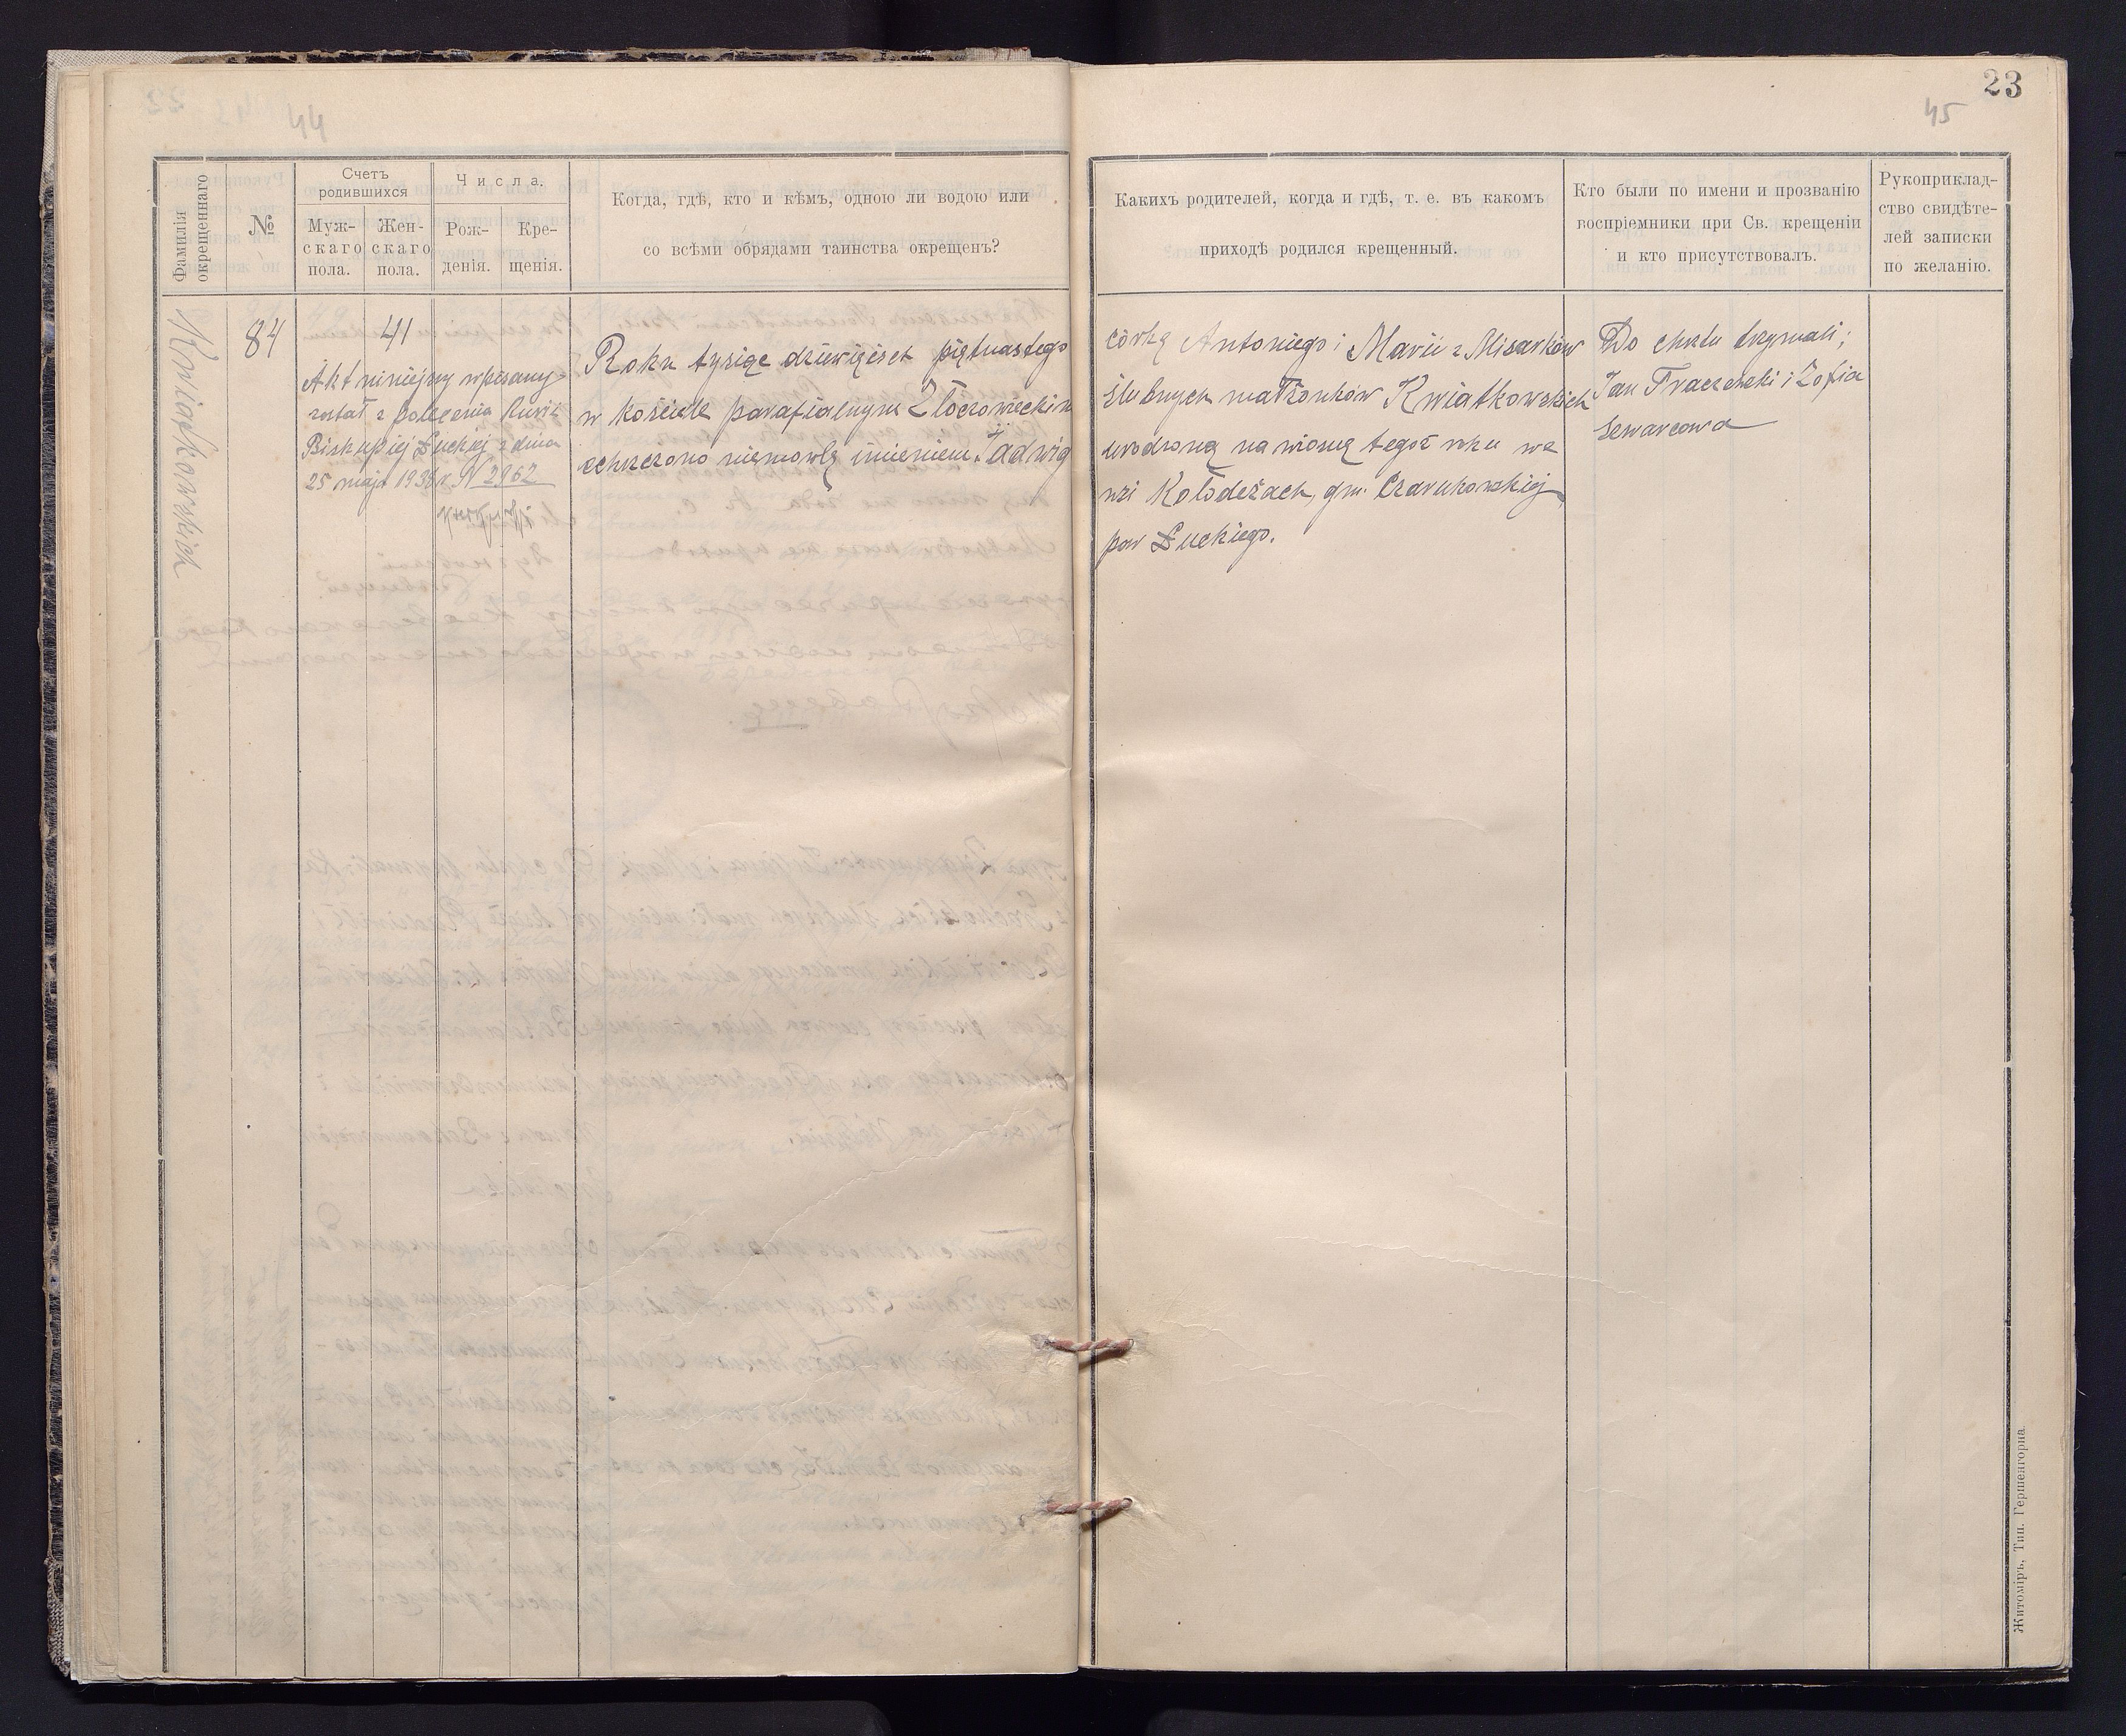 44
23
45
Фамилія
окрещеннаго
№
Счетъ
родившихся
Муж-
скаго
пола.
Жен-
скаго
пола.
Числа.
Рож-
денія.
Кре-
щенія.
Когда, гдѣ, кто и кѣмъ, одною ли водою или
со всѣми обрядами таинства окрещенъ?
Какихъ родителей, когда и гдѣ, т. е. въ какомъ
приходѣ родился крещенный.
Кто были по имени и прозванію
воспріемники при Св. крещеніи
и кто присутствовалъ.
Рукоприклад-
ство свидѣте-
лей записки
по желанію.
Kwiatkowskich
84
41
Akt niniejszy wpisany
został z polecenia Kurii
Biskupiej Łuckiej z dnia
25 maja 1936 r. N 2962
Roku tysiąc dziewięćset piętnastego
w kościele parafialnym
ochrzczono niemowlę imieniem Jadwig
córkę Antoniego i Marii z Misarków
ślubnych małżonków Kwiatkowskich
urodzoną na wiosnę tegoż roku we
wsi Kołodeżach, gm. Czarukowskiej
pow Łuckiego.
Do chrztu trzymali;
Jan Traczewski i Zofia
Szwarcowa
Житоміръ, Тип. Гершенгорна